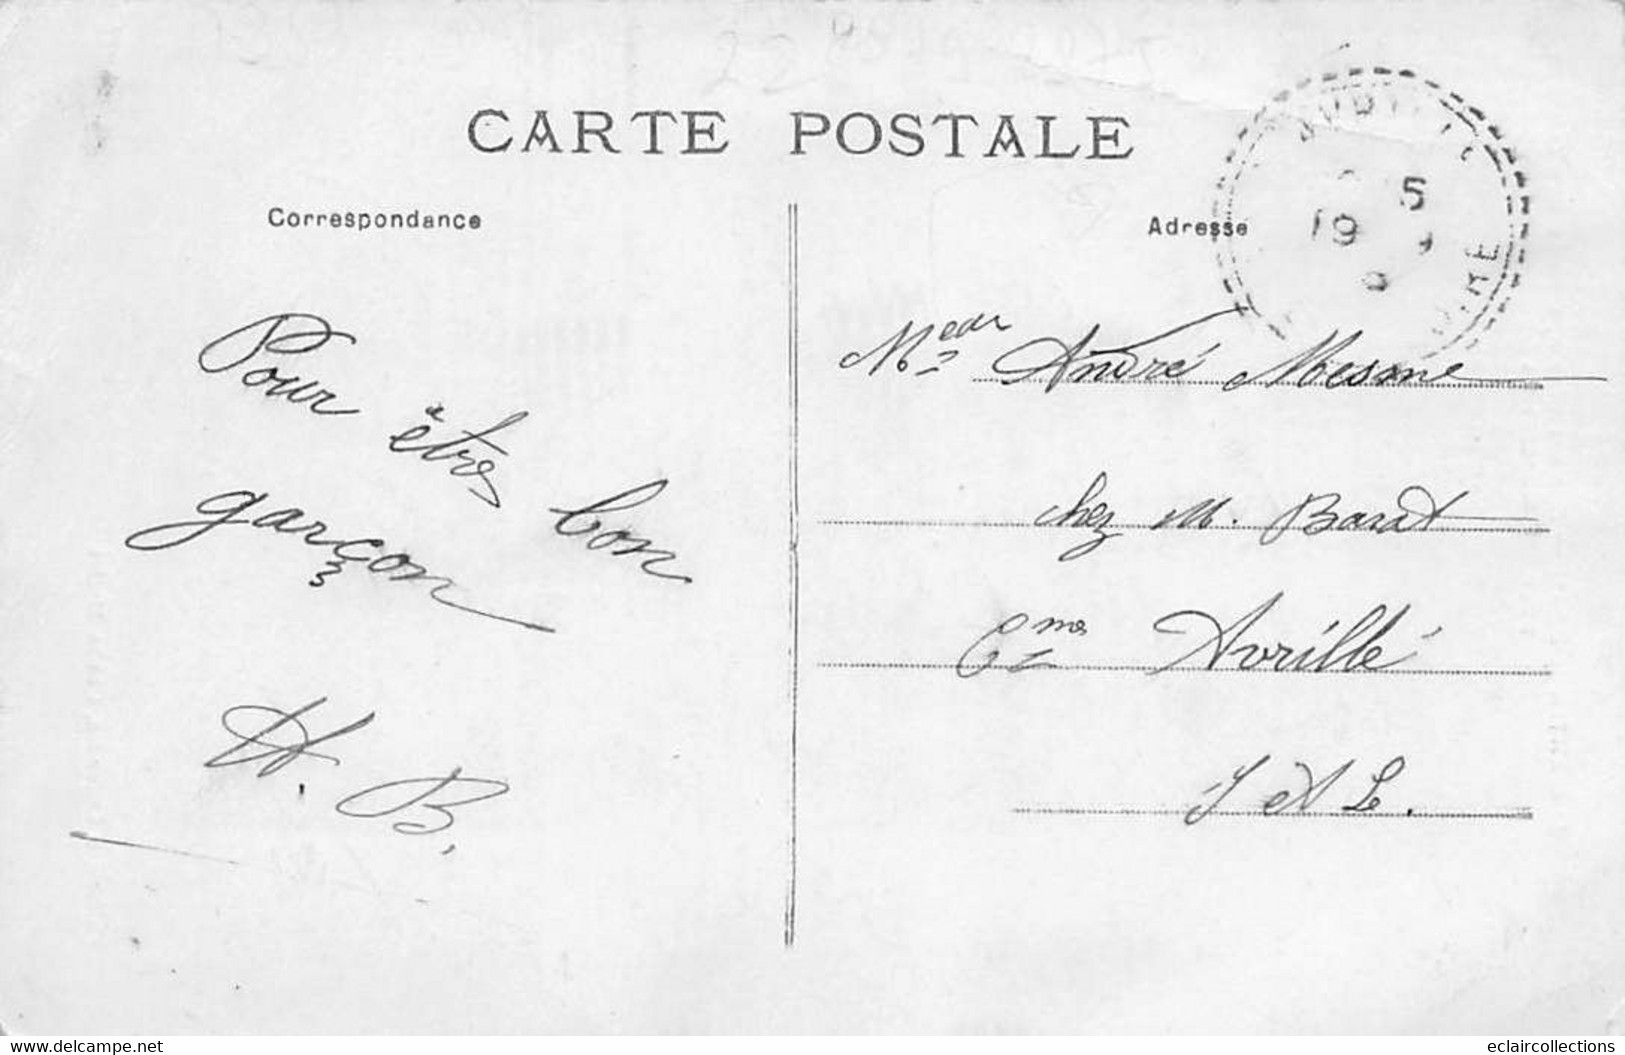 CARTE POSTALE
Correspondance
Adresse
5
19
8
Pour être bon
garçon
H. B.
André Mesme
chez M. Barat
Cme Avrillé
I et Le.
www.delcampe.net
eclaircollections